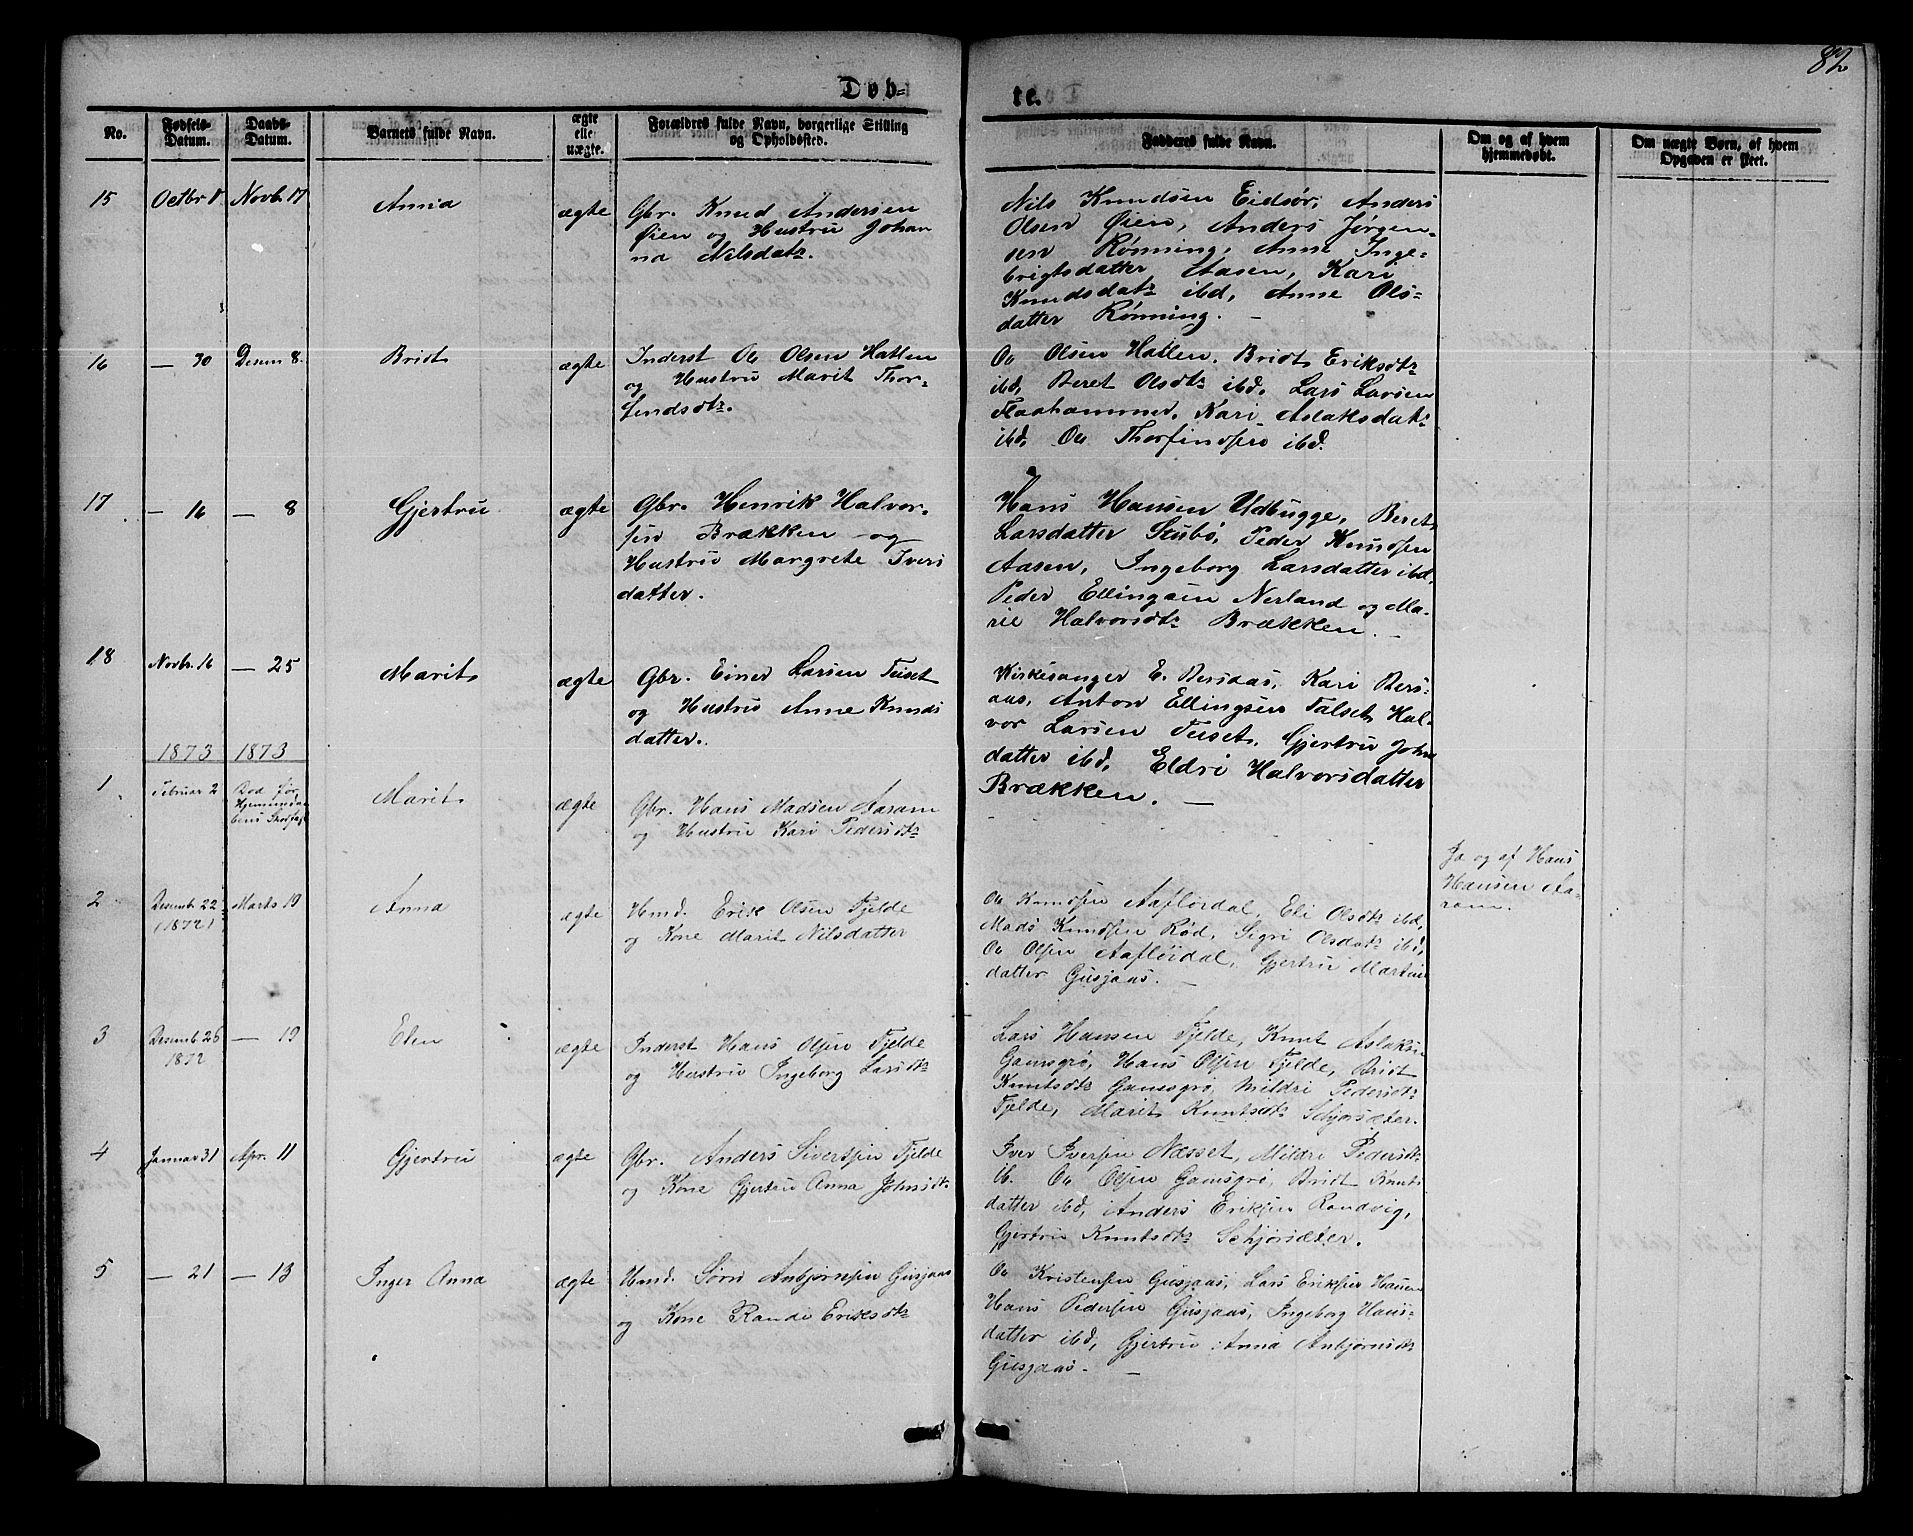 82
Døb=
te.
No.
Fødsels-
Datum.
Daabs-
Datum.
Barnets fulde Navn.
ægte
elle
uægte.
Forældres fulde Navn, borgerlige Stilling
og Opholdssted.
Faddernes fulde Navn.
Om og af hvem
hjemmedøbt.
Om uægte Børn, af hvem
Opgaven er skeet.
15
Octbr 11
Novb. 17
Anna
ægte
Gbr. Knud Andersen
Øien og Hustru Johan
na Nilsdatr.
Nils Knudsen Eidsør, Anders
Olsen Øien, Anders Jørgen-
sen Rønning, Anne Inge-
brigtsdatter Aasen, Kari
Knudsdatr ibd, Anne Ols-
datter Rønning.
16
— 30
Desem 8.
Bridt
ægte
Inderst Ole Olsen Hatlen
og Hustru Marit Thor-
findsdtr.
Ole Olsen Hatlen, Bridt Eriksdtr
ibd, Beret Olsdtr ibd, Lars Larsen
Flaahammer, Kari Aslaksdatr
ibd, Ole Thorfindsen ibd.
17
— 16
— 8
Gjertru
ægte
Gbr. Henrik Halvor-
sen Brækken og
Hustru Margrete Ivers
datter.
Hans Hansen Udbugge, Beret
Larsdatter Stubø, Peder Knudsen
Aasen, Ingeborg Larsdatter ibd,
Peder Ellingsen Nerland og Ma-
rie Halvorsdtr Brækken. —
18
Novbr. 16
— 25
Marit
ægte
Gbr. Einer Larsen Teiset
og Hustru Anne Knuds
datter.
Kirkesanger E. Bersaas, Kari Bers-
aas, Anton Ellingsen Talset, Hal-
vor Larsen Teiset, Gjertru Johns
datter ibd, Eldri Halvorsdatter
Brækken. —
1873
1873
1
Februar 2
Død før
Hjemmedaa
bens Stadfæst
Marit
ægte
Gbr. Hans Madsen Aaram
og Hustru Kari Pedersdtr
Ja og af Hans
Hansen Aa-
ram.
2
Desemb. 22
(1872)
Marts 19
Anna
ægte
Hmd. Erik Olsen Fjelde
og Kone Marit Nilsdatter
Ole Knudsen Aafløidal, Eli Olsdtr ibd,
Mads Knudsen Rød, Sigri Olsdatr ibd,
Ole Olsen Aafløidal, Gjertru Martins
datter Gusjaas. —
3
Desemb 26
1872
— 19
Elen
ægte
Inderst Hans Olsen Fjelde
og Hustru Ingeborg Larsdtr
Lars Hansen Fjelde, Knut Aslaksen
Gamsgrø, Hans Olsen Fjelde, Bridt
Knutsdtr Gamsgrø, Mildri Pedersdtr
Fjelde, Marit Knutsdtr Schjørsæter.
4
Januar 31
Apr. 11
Gjertru
ægte
Gbr. Anders Sivertsen Fjelde
og Kone Gjertru Anna Johnsdtr
Iver Iversen Næsset, Mildri Pedersdtr
ib. Ole Olsen Gamsgrø, Bridt Knuts
datter ibd, Anders Eriksen Randvig,
Gjertru Knutsdtr Schjørsæter.
5
— 21
— 13
Inger Anna
ægte
Hmd. Søren Anbjørnsen Gusjaas
og Kone Randi Eriksdtr
Ole Kristensen Gusjaas, Lars Eriksen Hauen
Hans Pedersen Gusjaas, Ingeborg Hans-
datter ibd, Gjertru Anna Anbjørnsdtr
Gusjaas. —